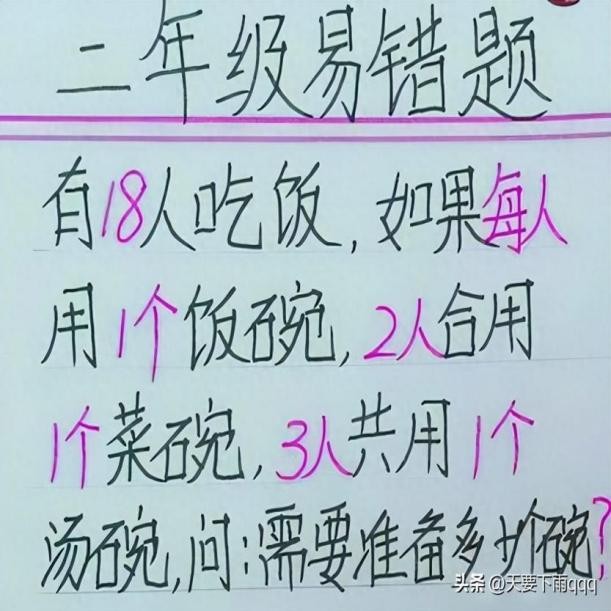 二年级易错题
有18人吃饭,如果每人
用1个饭碗,2人合用
1个菜碗,3人共用1个
汤碗,问:需要准备多少个碗?
头条 @天要下雨qqq